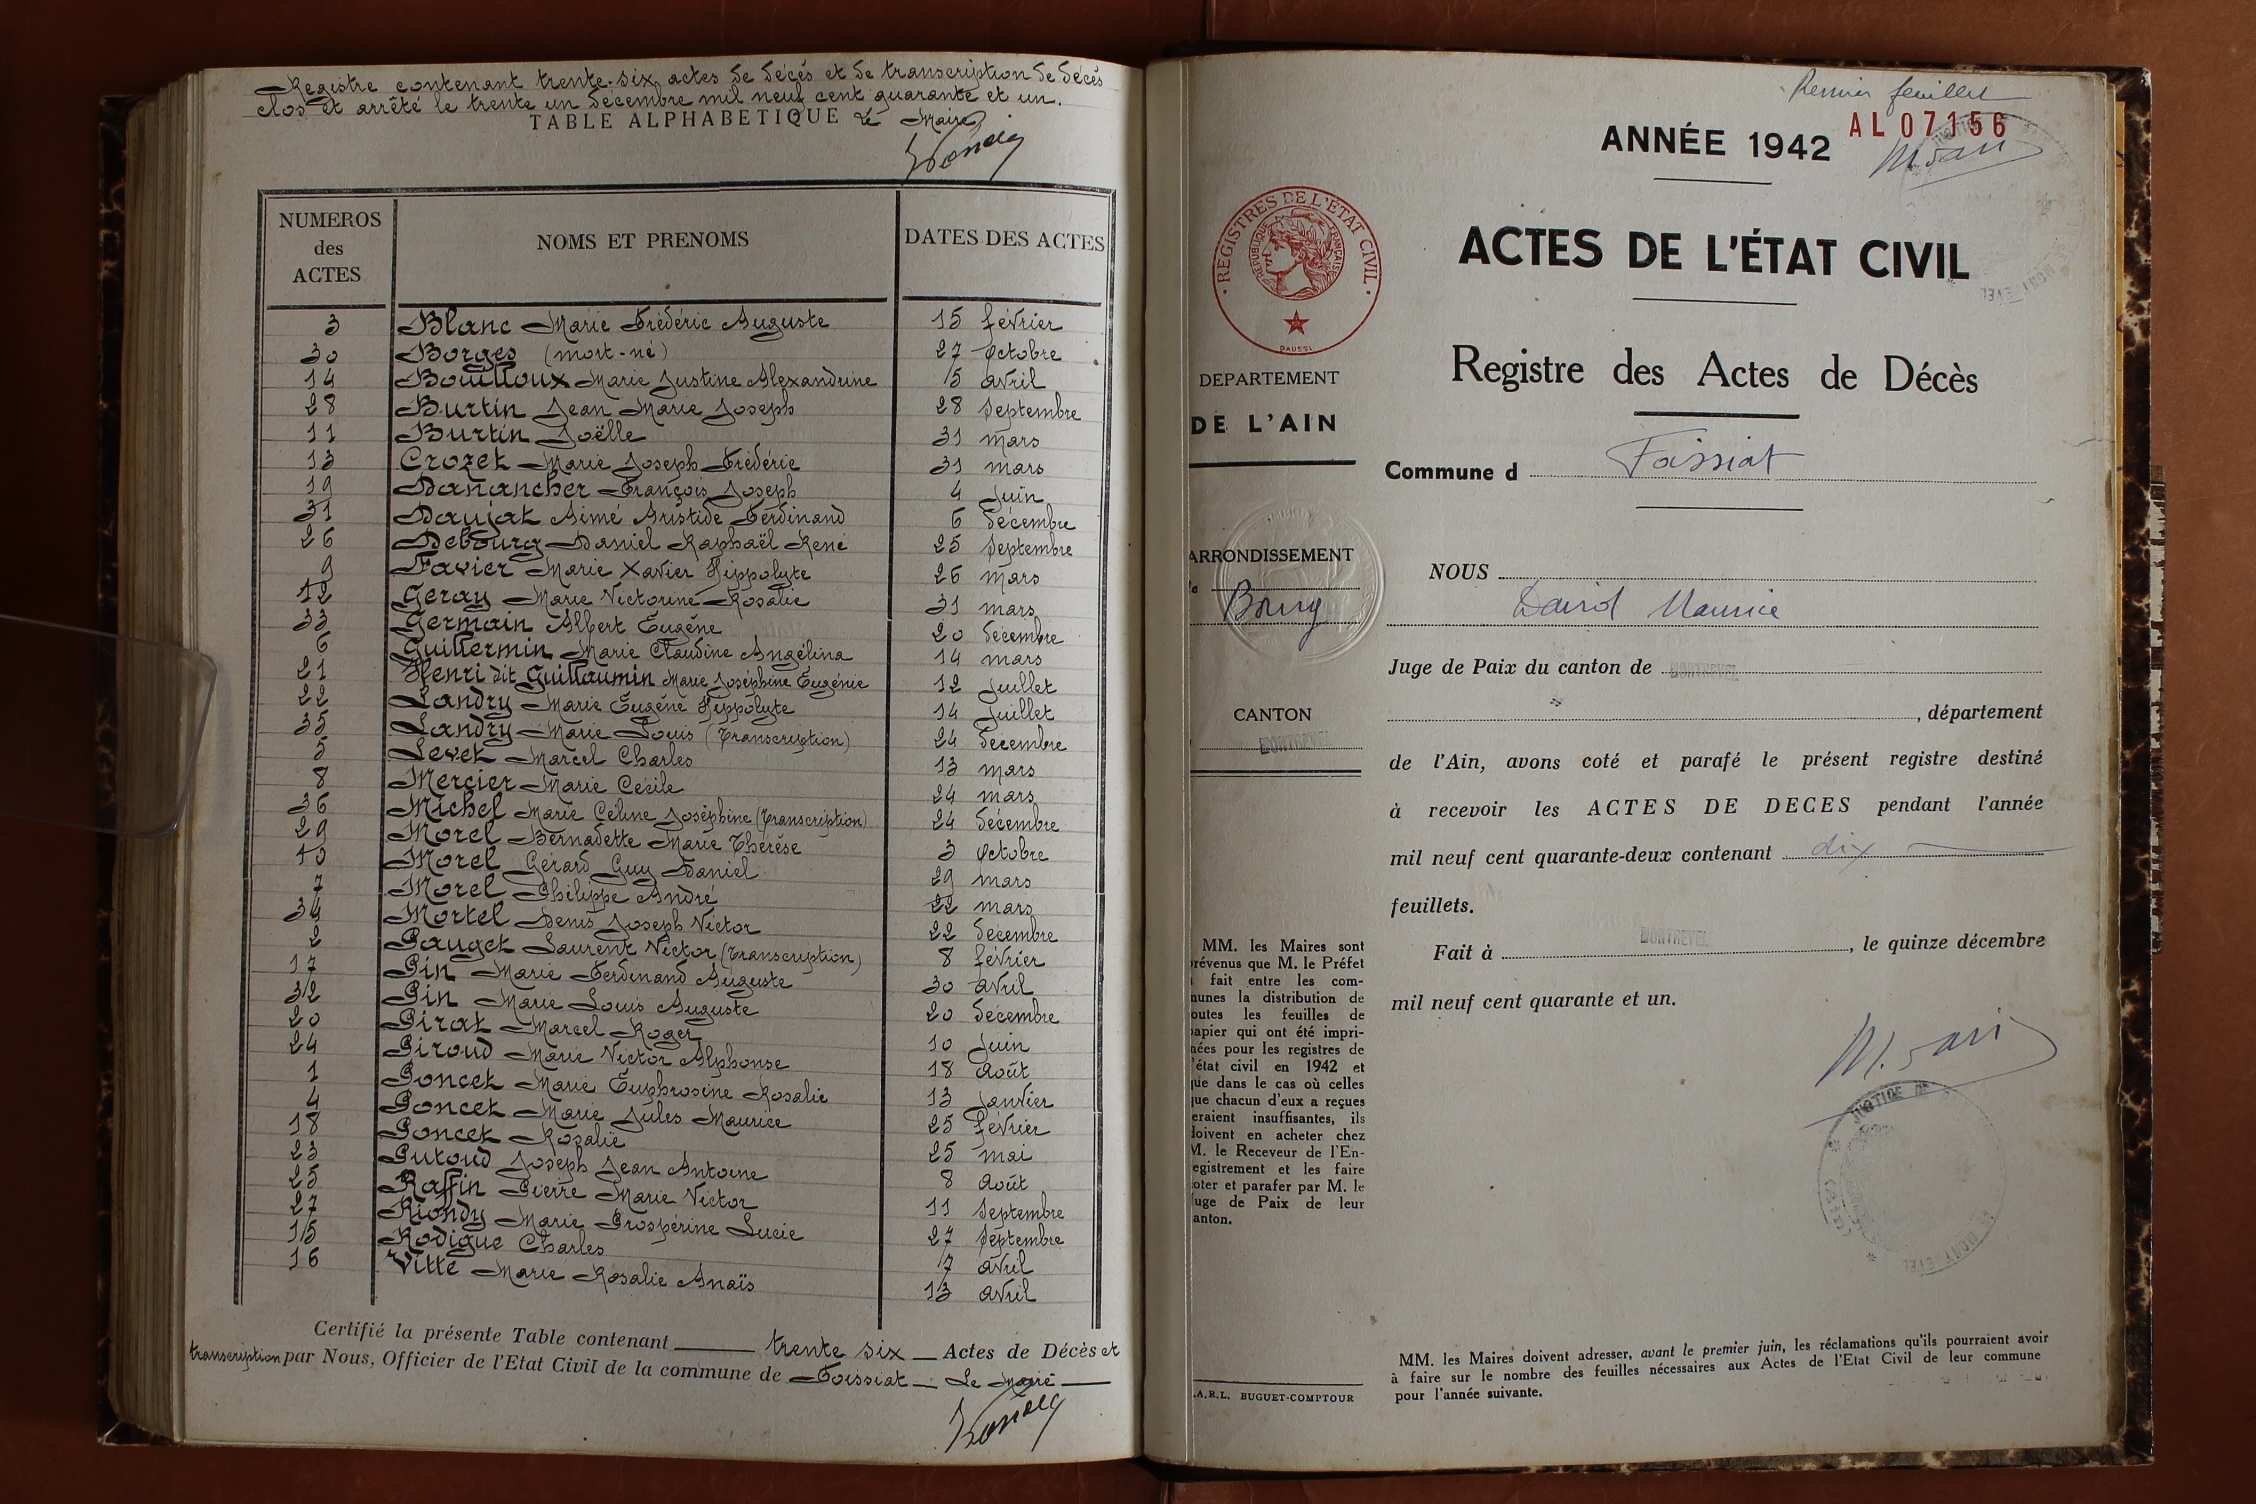 Registre contenant trente-six actes de décès et de transcription de décès
clos et arrêté le trente un décembre mil neuf cent quarante et un.
TABLE ALPHABETIQUE Le Maire
NUMEROS des ACTES NOMS ET PRENOMS DATES DES ACTES
3 Blanc Marie Frédéric Auguste 15 février
30 Borges (mort-né) 27 octobre
14 Bouilloux Marie Justine Alexandrine 5 avril
28 Burtin Jean Marie Joseph 28 septembre
11 Burtin Joëlle 31 mars
13 Crozet Marie Joseph Frédéric 31 mars
19 Danancher François Joseph 4 juin
31 Daujat Aimé Aristide Ferdinand 6 décembre
26 Debourg Daniel Raphaël René 25 septembre
9 Favier Marie Xavier Hippolyte 26 mars
12 Geray Marie Victorine Rosalie 31 mars
33 Germain Albert Eugène 20 décembre
6 Guillermin Marie Claudine Angélina 14 mars
21 Henri dit Guillaumin Marie Joséphine Eugénie 12 juillet
22 Landry Marie Eugène Hippolyte 14 juillet
35 Landry Marie Louis (Transcription) 24 décembre
5 Levet Marcel Charles 13 mars
8 Mercier Marie Cécile 24 mars
36 Michel Marie Céline Joséphine (Transcription) 24 décembre
29 Morel Bernadette Marie Thérèse 3 octobre
10 Morel Gérard Guy Daniel 29 mars
7 Morel Philippe André 22 mars
34 Mortel Denis Joseph Victor 22 décembre
2 Pauget Laurent Victor (Transcription) 8 février
17 Pin Marie Ferdinand Auguste 30 avril
32 Pin Marie Louis Auguste 20 décembre
20 Pirat Marcel Roger 10 juin
24 Piroud Marie Victor Alphonse 18 août
1 Poncet Marie Euphrosine Rosalie 13 janvier
4 Poncet Marie Jules Maurice 25 février
18 Poncet Rosalie 25 mai
23 Putoud Joseph Jean Antoine 8 août
25 Raffin Pierre Marie Victor 11 septembre
27 Riondy Marie Prospérine Lucie 27 septembre
15 Rodigue Charles 7 avril
16 Vitte Marie Rosalie Anaïs 13 avril
Certifié la présente Table contenant trente six Actes de Décès et
transcription par Nous, Officier de l'Etat Civil de la commune de Foissiat Le Maire
Premier feuillet
ANNÉE 1942 AL07156
ACTES DE L'ÉTAT CIVIL
Registre des Actes de Décès
REGISTRES DE L'ETAT CIVIL
REPUBLIQUE FRANÇAISE
DAUSSI
DEPARTEMENT
DE L'AIN
Commune d Foissiat
ARRONDISSEMENT
Bourg
CANTON
MONTREVEL
NOUS
David Maurice
Juge de Paix du canton de MONTREVEL
, département
de l'Ain, avons coté et parafé le présent registre destiné
à recevoir les ACTES DE DECES pendant l'année
mil neuf cent quarante-deux contenant dix
feuillets.
Fait à MONTREVEL, le quinze décembre
mil neuf cent quarante et un.
JUSTICE DE
MM. les Maires sont
révenus que M. le Préfet
fait entre les com-
munes la distribution de
outes les feuilles de
apier qui ont été impri-
ées pour les registres de
'état civil en 1942 et
ue dans le cas où celles
ue chacun d'eux a reçues
eraient insuffisantes, ils
doivent en acheter chez
M. le Receveur de l'En-
egistrement et les faire
oter et parafer par M. le
uge de Paix de leur
anton.
.A.R.L. BUGUET-COMPTOUR
MM. les Maires doivent adresser, avant le premier juin, les réclamations qu'ils pourraient avoir
à faire sur le nombre des feuilles nécessaires aux Actes de l'Etat Civil de leur commune
pour l'année suivante.